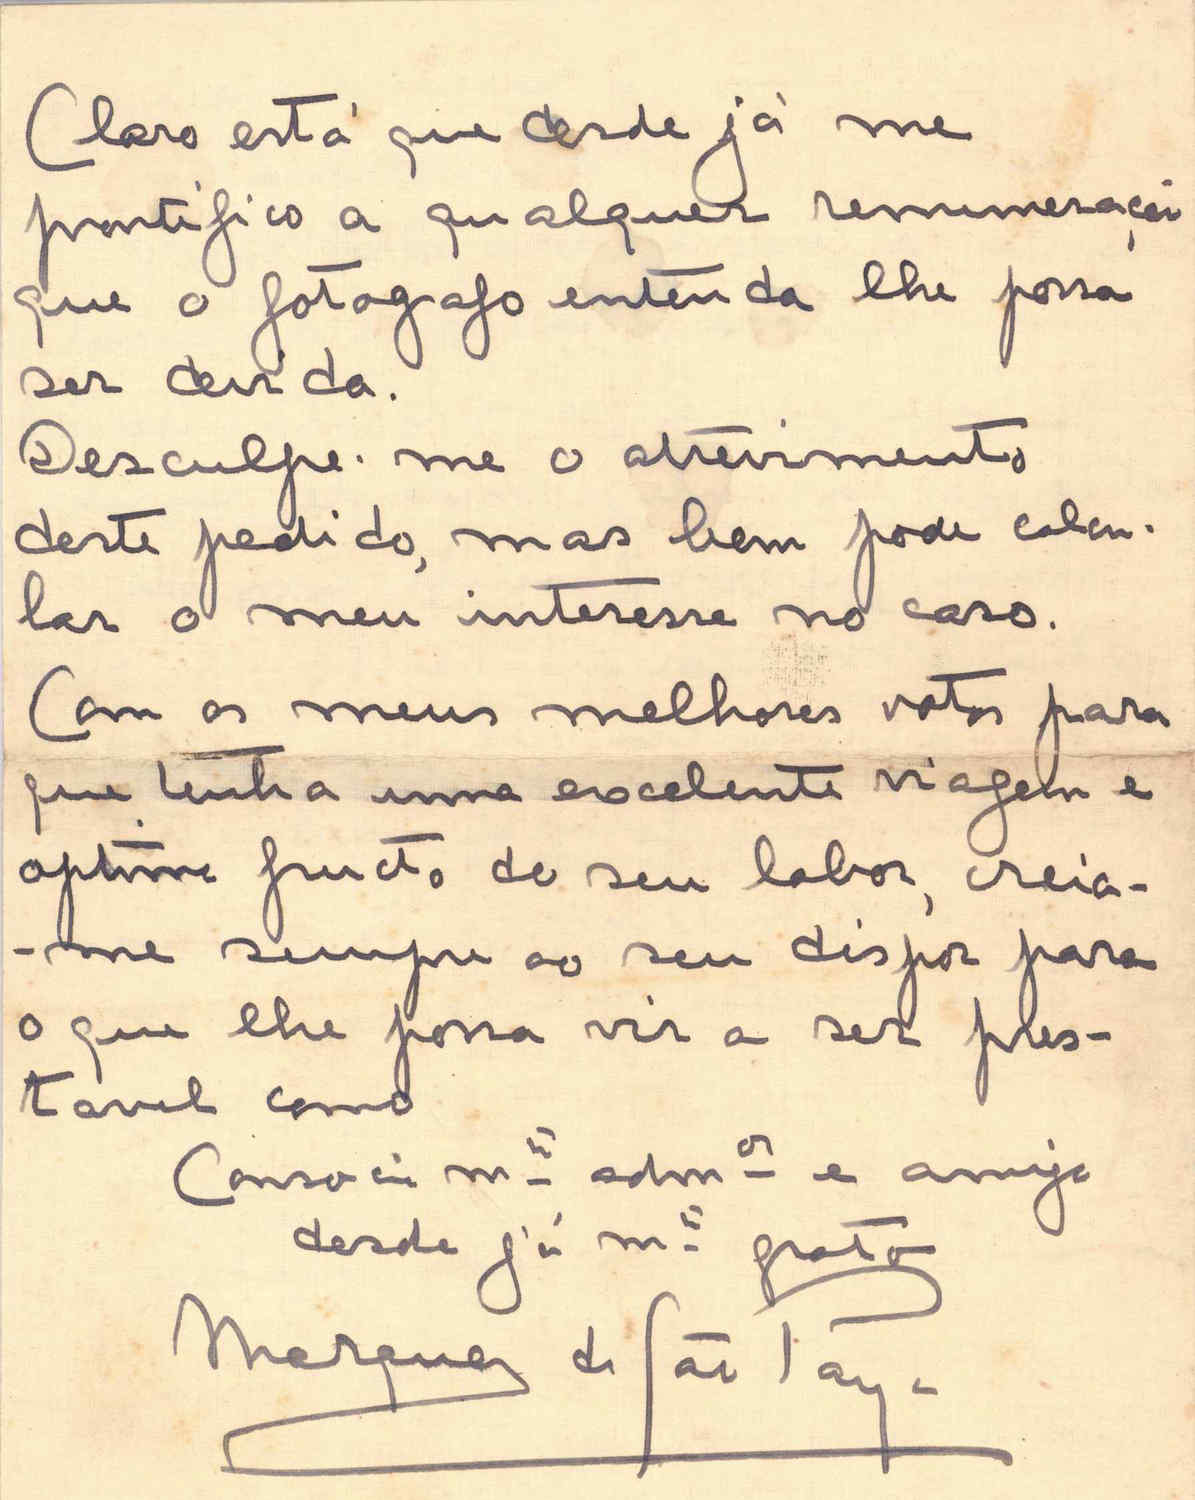 Claro está que desde já me
prontifico a qualquer remuneração
que o fotografo entenda lhe possa
ser devida.
Desculpe-me o atrevimento
deste pedido, mas bem pode calcu-
lar o meu interesse no caso.
Com os meus melhores votos para
que tenha uma excelente viagem e
optimo fructo do seu labor, creia-
-me sempre ao seu dispor para
o que lhe possa vir a ser pres-
tavel como
Consocio mto admor e amigo
desde já mto grato
Marquez de São Payo